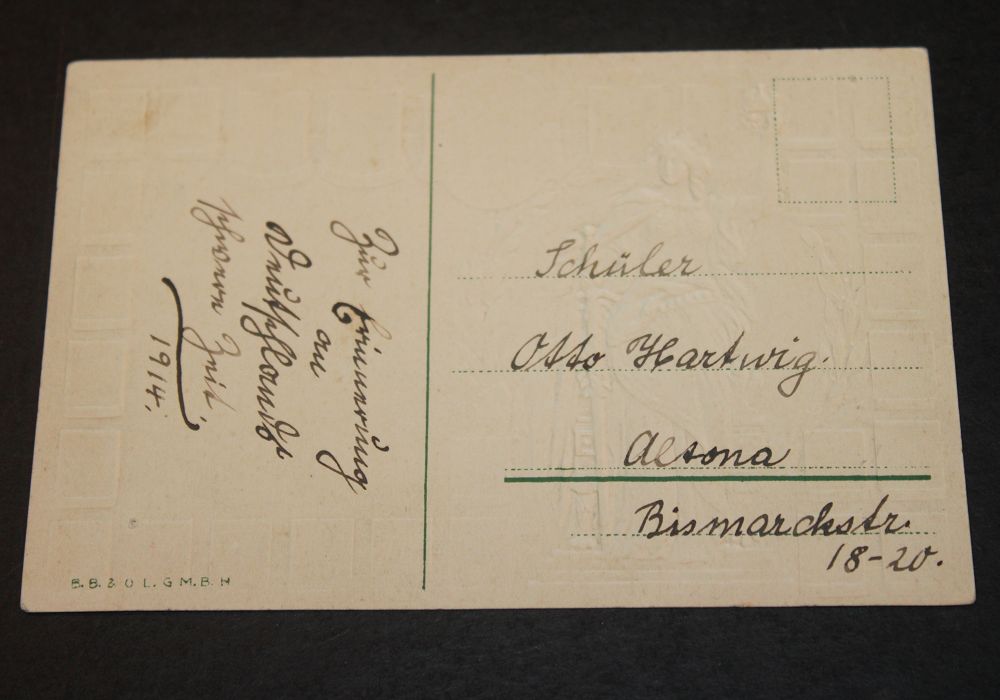 Zur Erinnerung
an
Deutschlands
schwere Zeit.
1914.
B. B. & O L. G M. B. H
Schüler
Otto Hartwig.
Altona
Bismarckstr.
18-20.